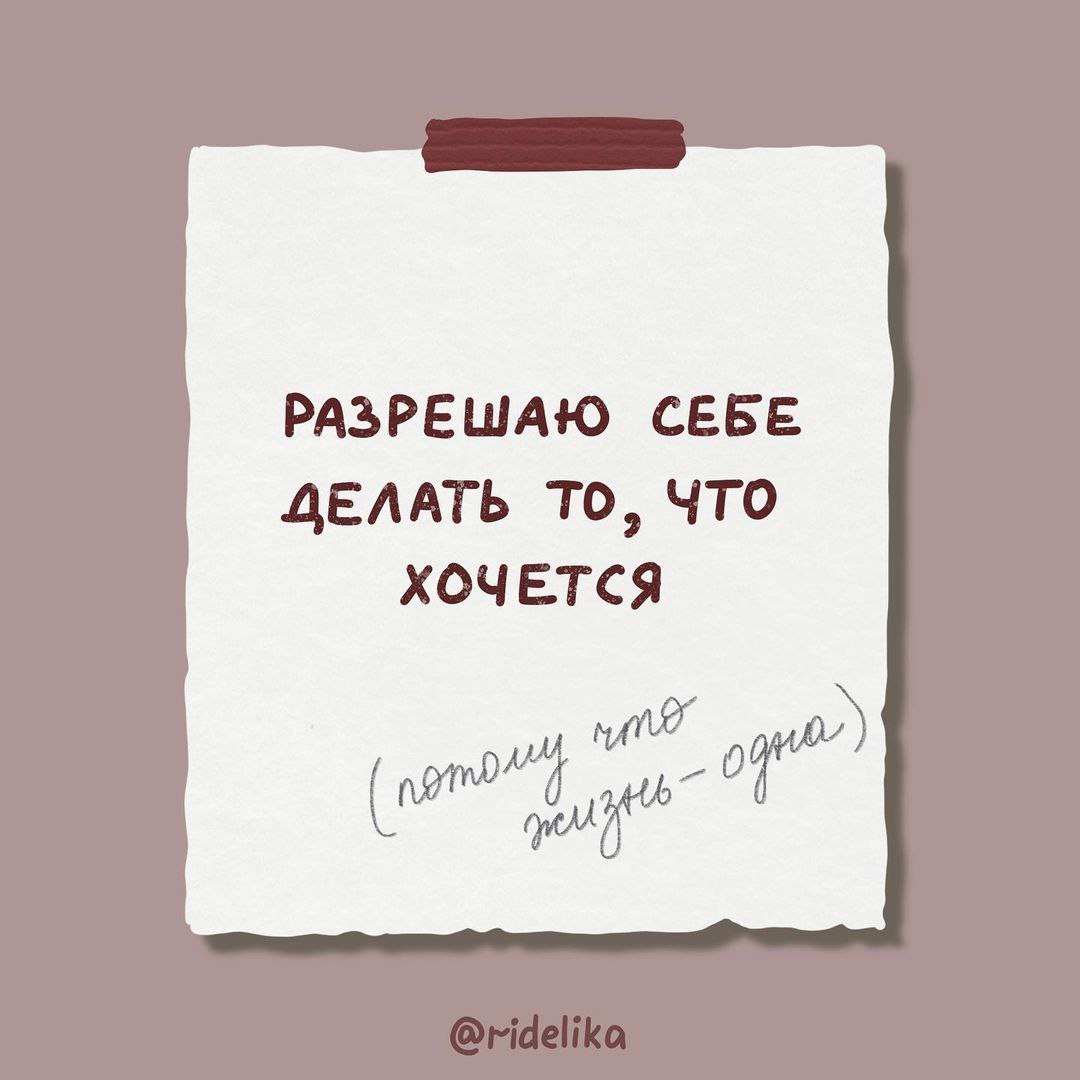 РАЗРЕШАЮ СЕБЕ
ДЕЛАТЬ ТО, ЧТО
ХОЧЕТСЯ
(потому что
жизнь – одна)
@ridelika